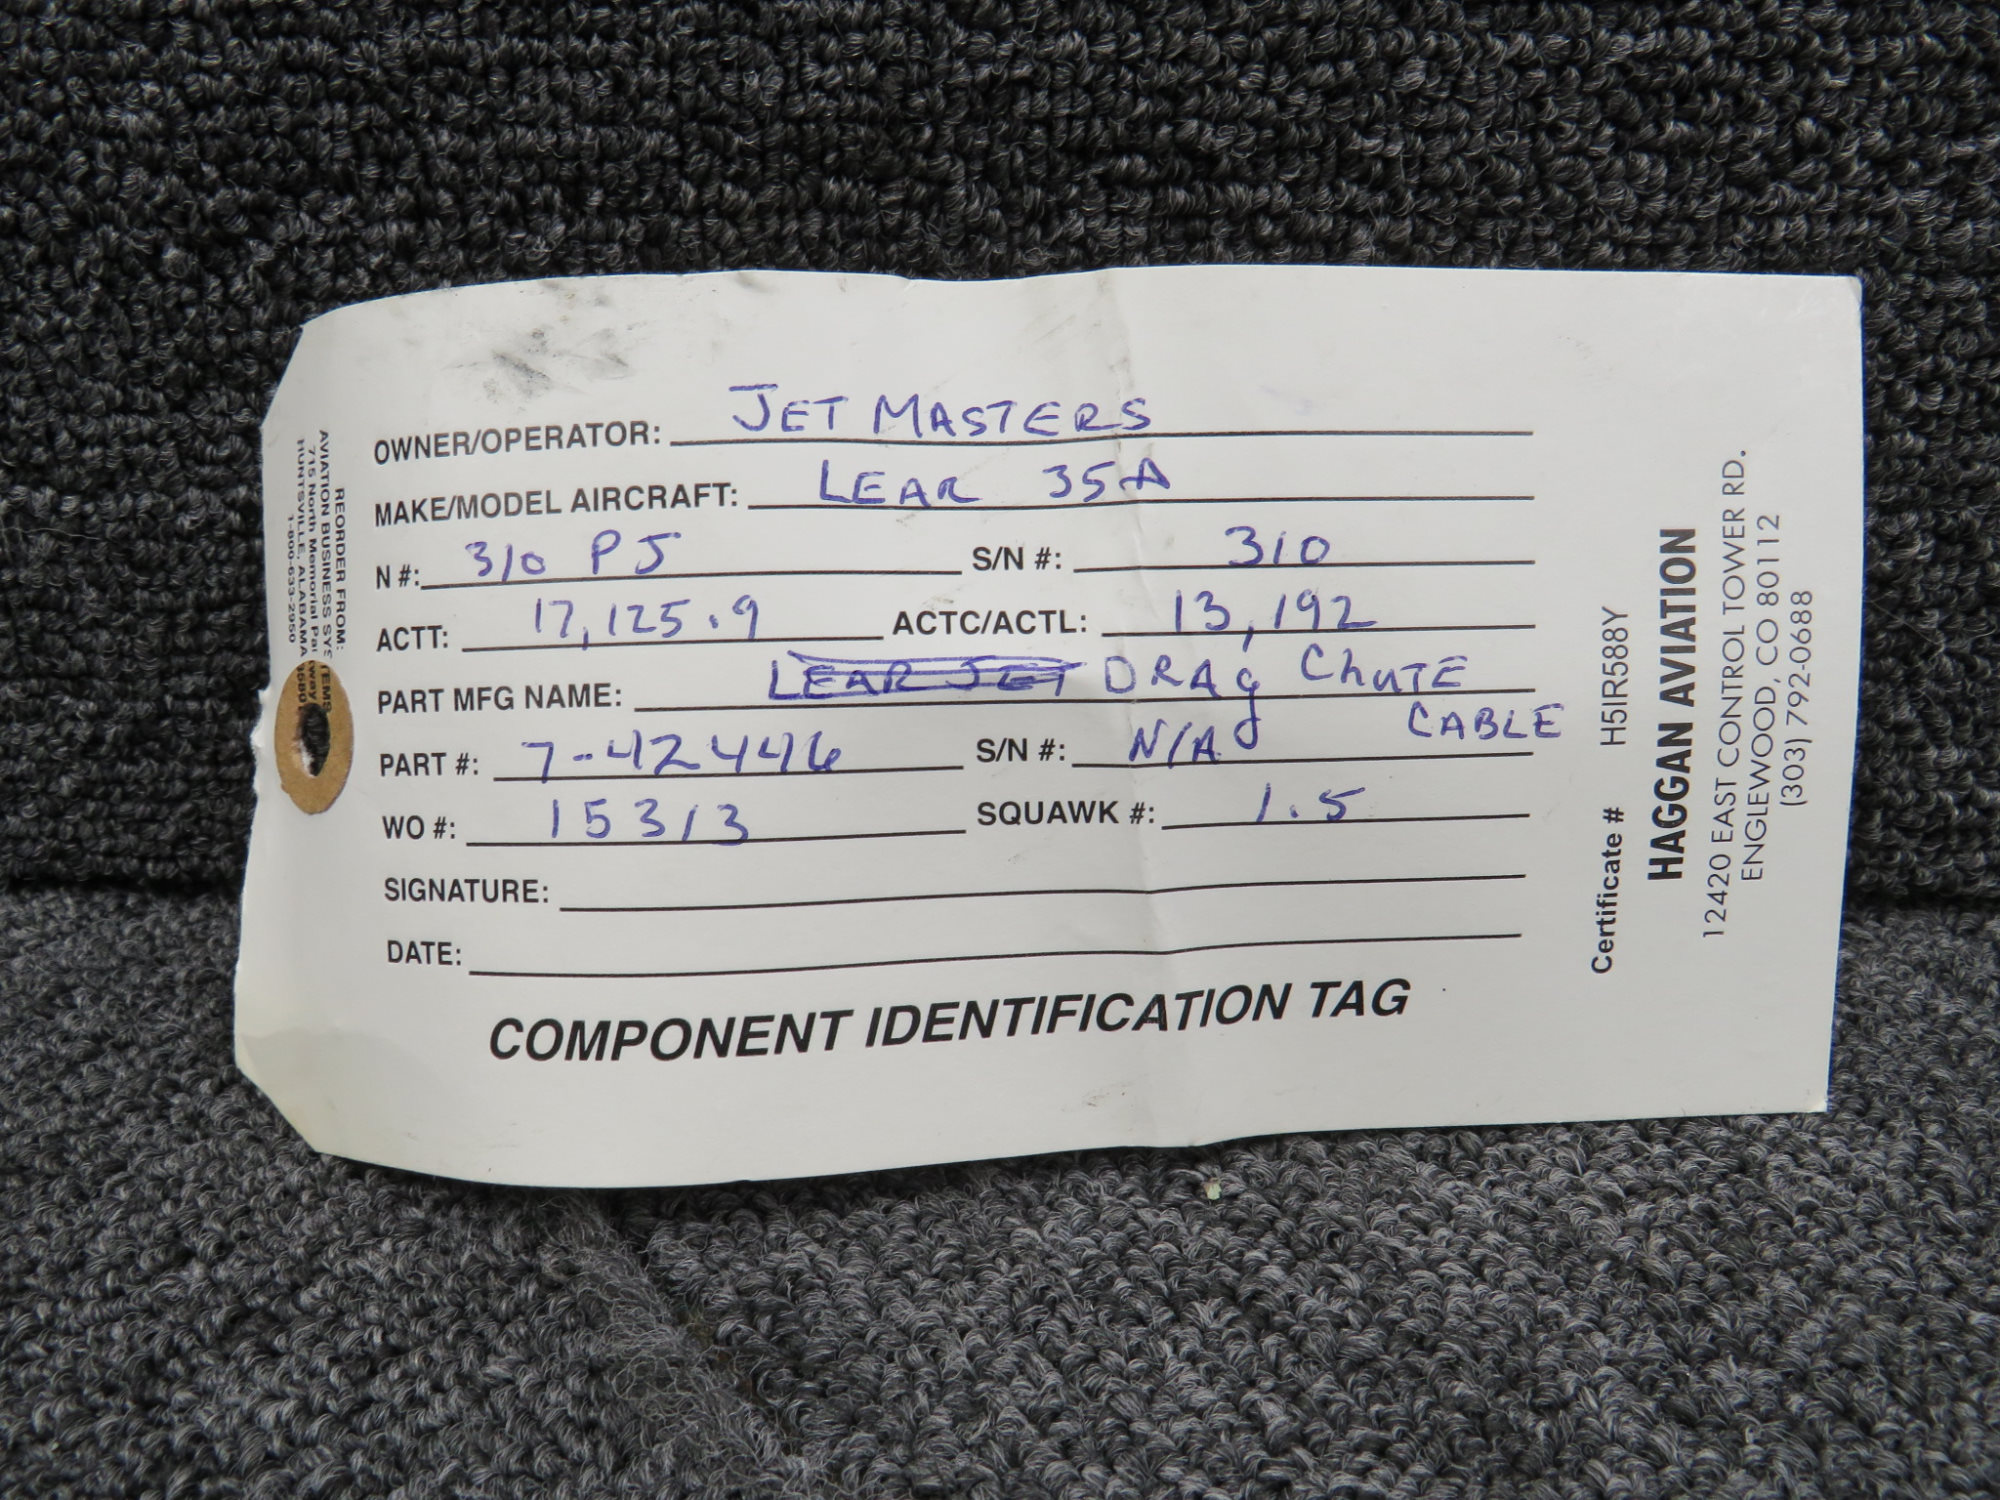 OWNER/OPERATOR: JET MASTERS
MAKE/MODEL AIRCRAFT: LEAR 35A
N #: 310 PJ S/N #: 310
ACTT: 17,125.9 ACTC/ACTL: 13,192
PART MFG NAME: LEAR JET DRAg ChuTE
CABLE
PART #: 7-42446 S/N #: N/A
WO #: 15313 SQUAWK #: 1.5
SIGNATURE:
DATE:
COMPONENT IDENTIFICATION TAG
Certificate # H5IR588Y
HAGGAN AVIATION
12420 EAST CONTROL TOWER RD.
ENGLEWOOD, CO 80112
(303) 792-0688
REORDER FROM:
AVIATION BUSINESS SYSTEMS
715 North Memorial
HUNTSVILLE, ALABAMA
1-800-63-2950